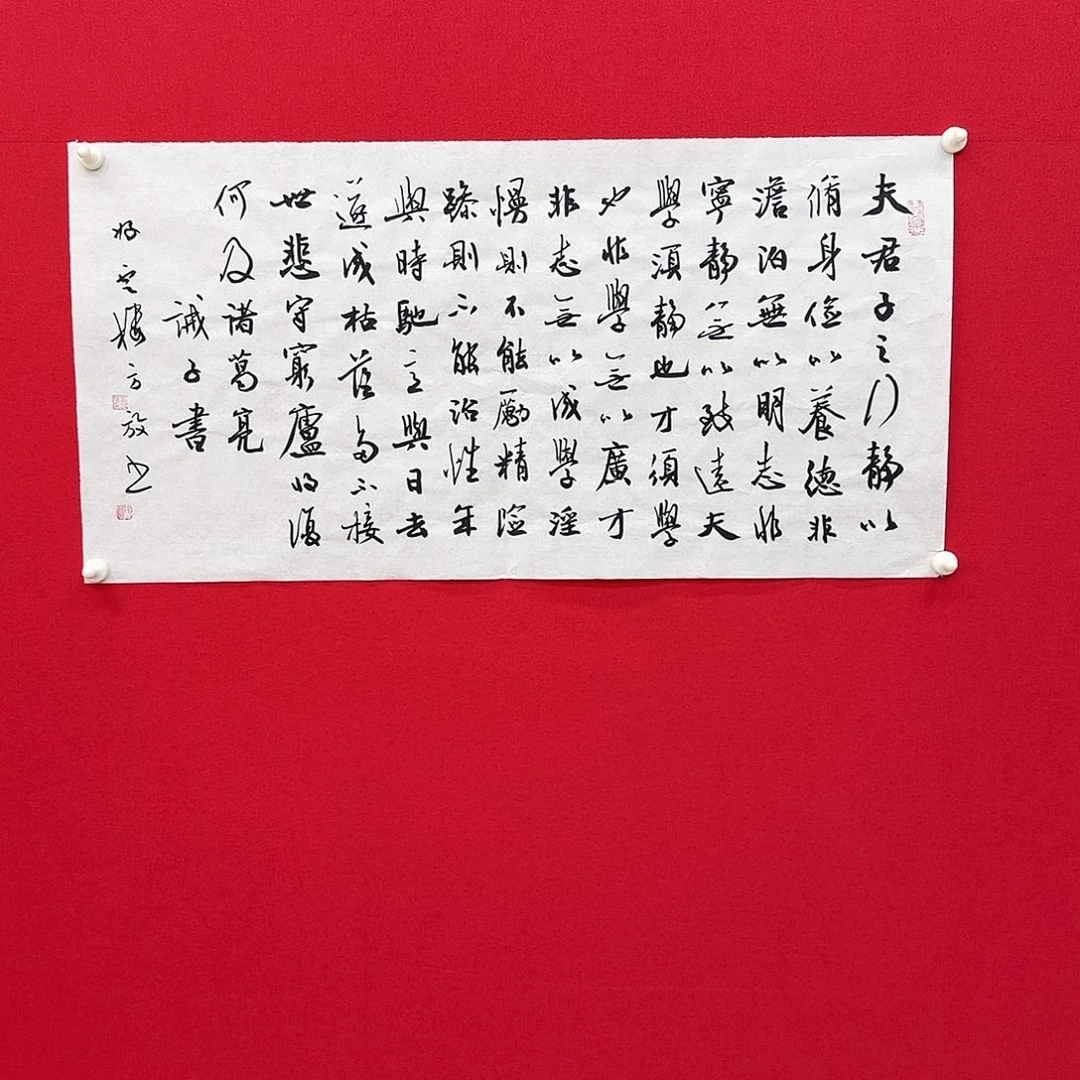 夫君子之行靜以
脩身儉以養德非
澹泊無以明志非
寧靜無以致遠夫
學須靜也才須學
也非學無以廣才
非志無以成學淫
慢則不能勵精險
躁則不能治性年
與時馳意與日去
遂成枯落多不接
世悲守窮廬將復
何及諸葛亮
誡子書
方放书